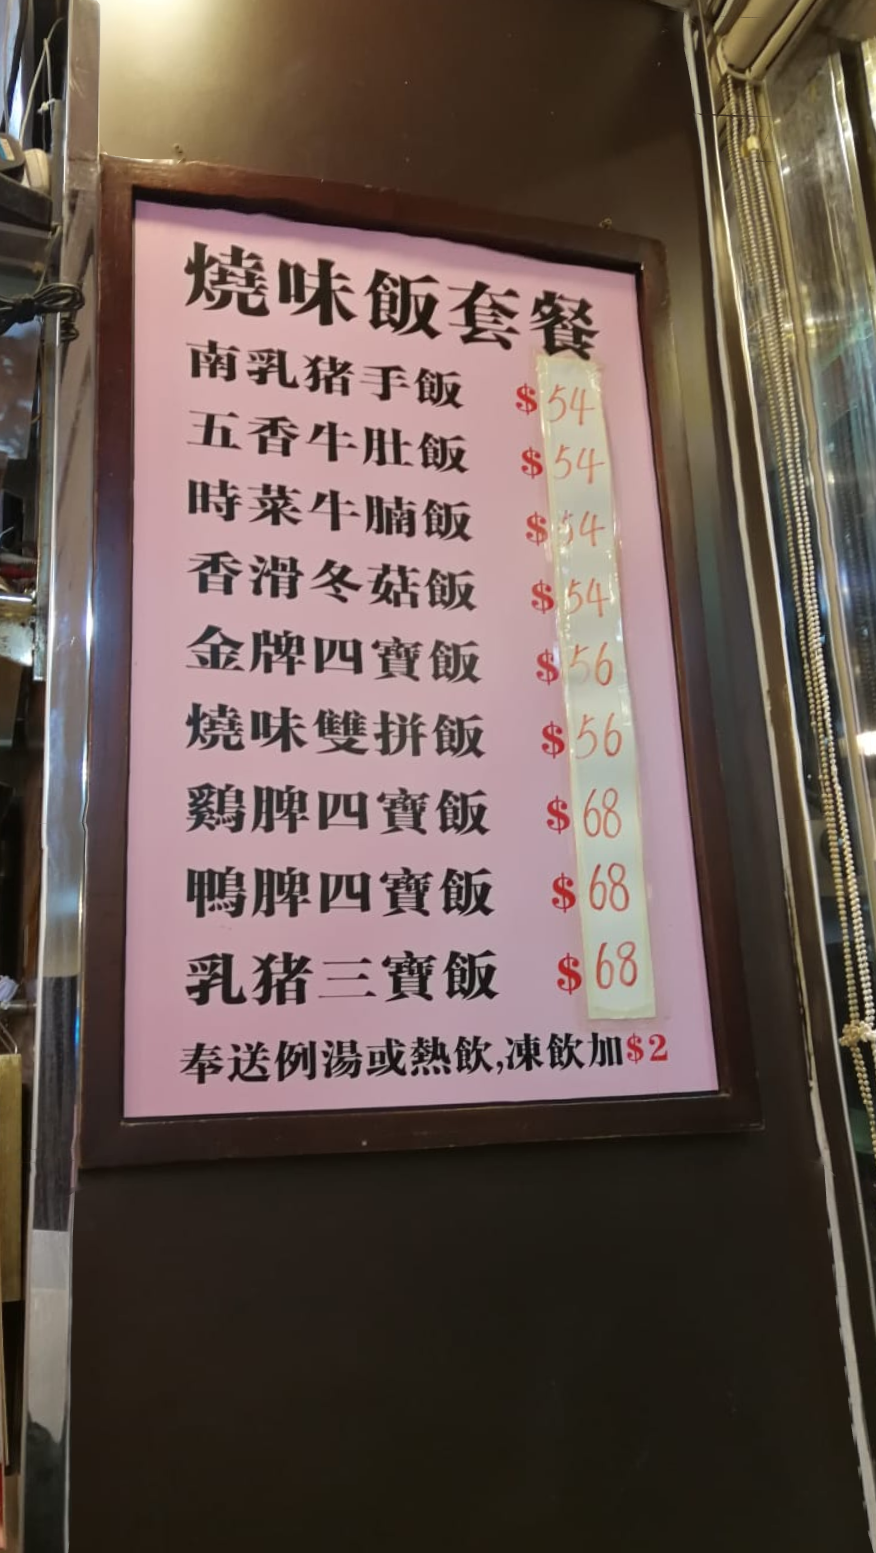 燒味飯套餐
南乳猪手飯 $54
五香牛肚飯 $54
時菜牛腩飯 $54
香滑冬菇飯 $54
金牌四寶飯 $56
燒味雙拼飯 $56
鷄脾四寶飯 $68
鴨脾四寶飯 $68
乳猪三寶飯 $68
奉送例湯或熱飲,凍飲加$2